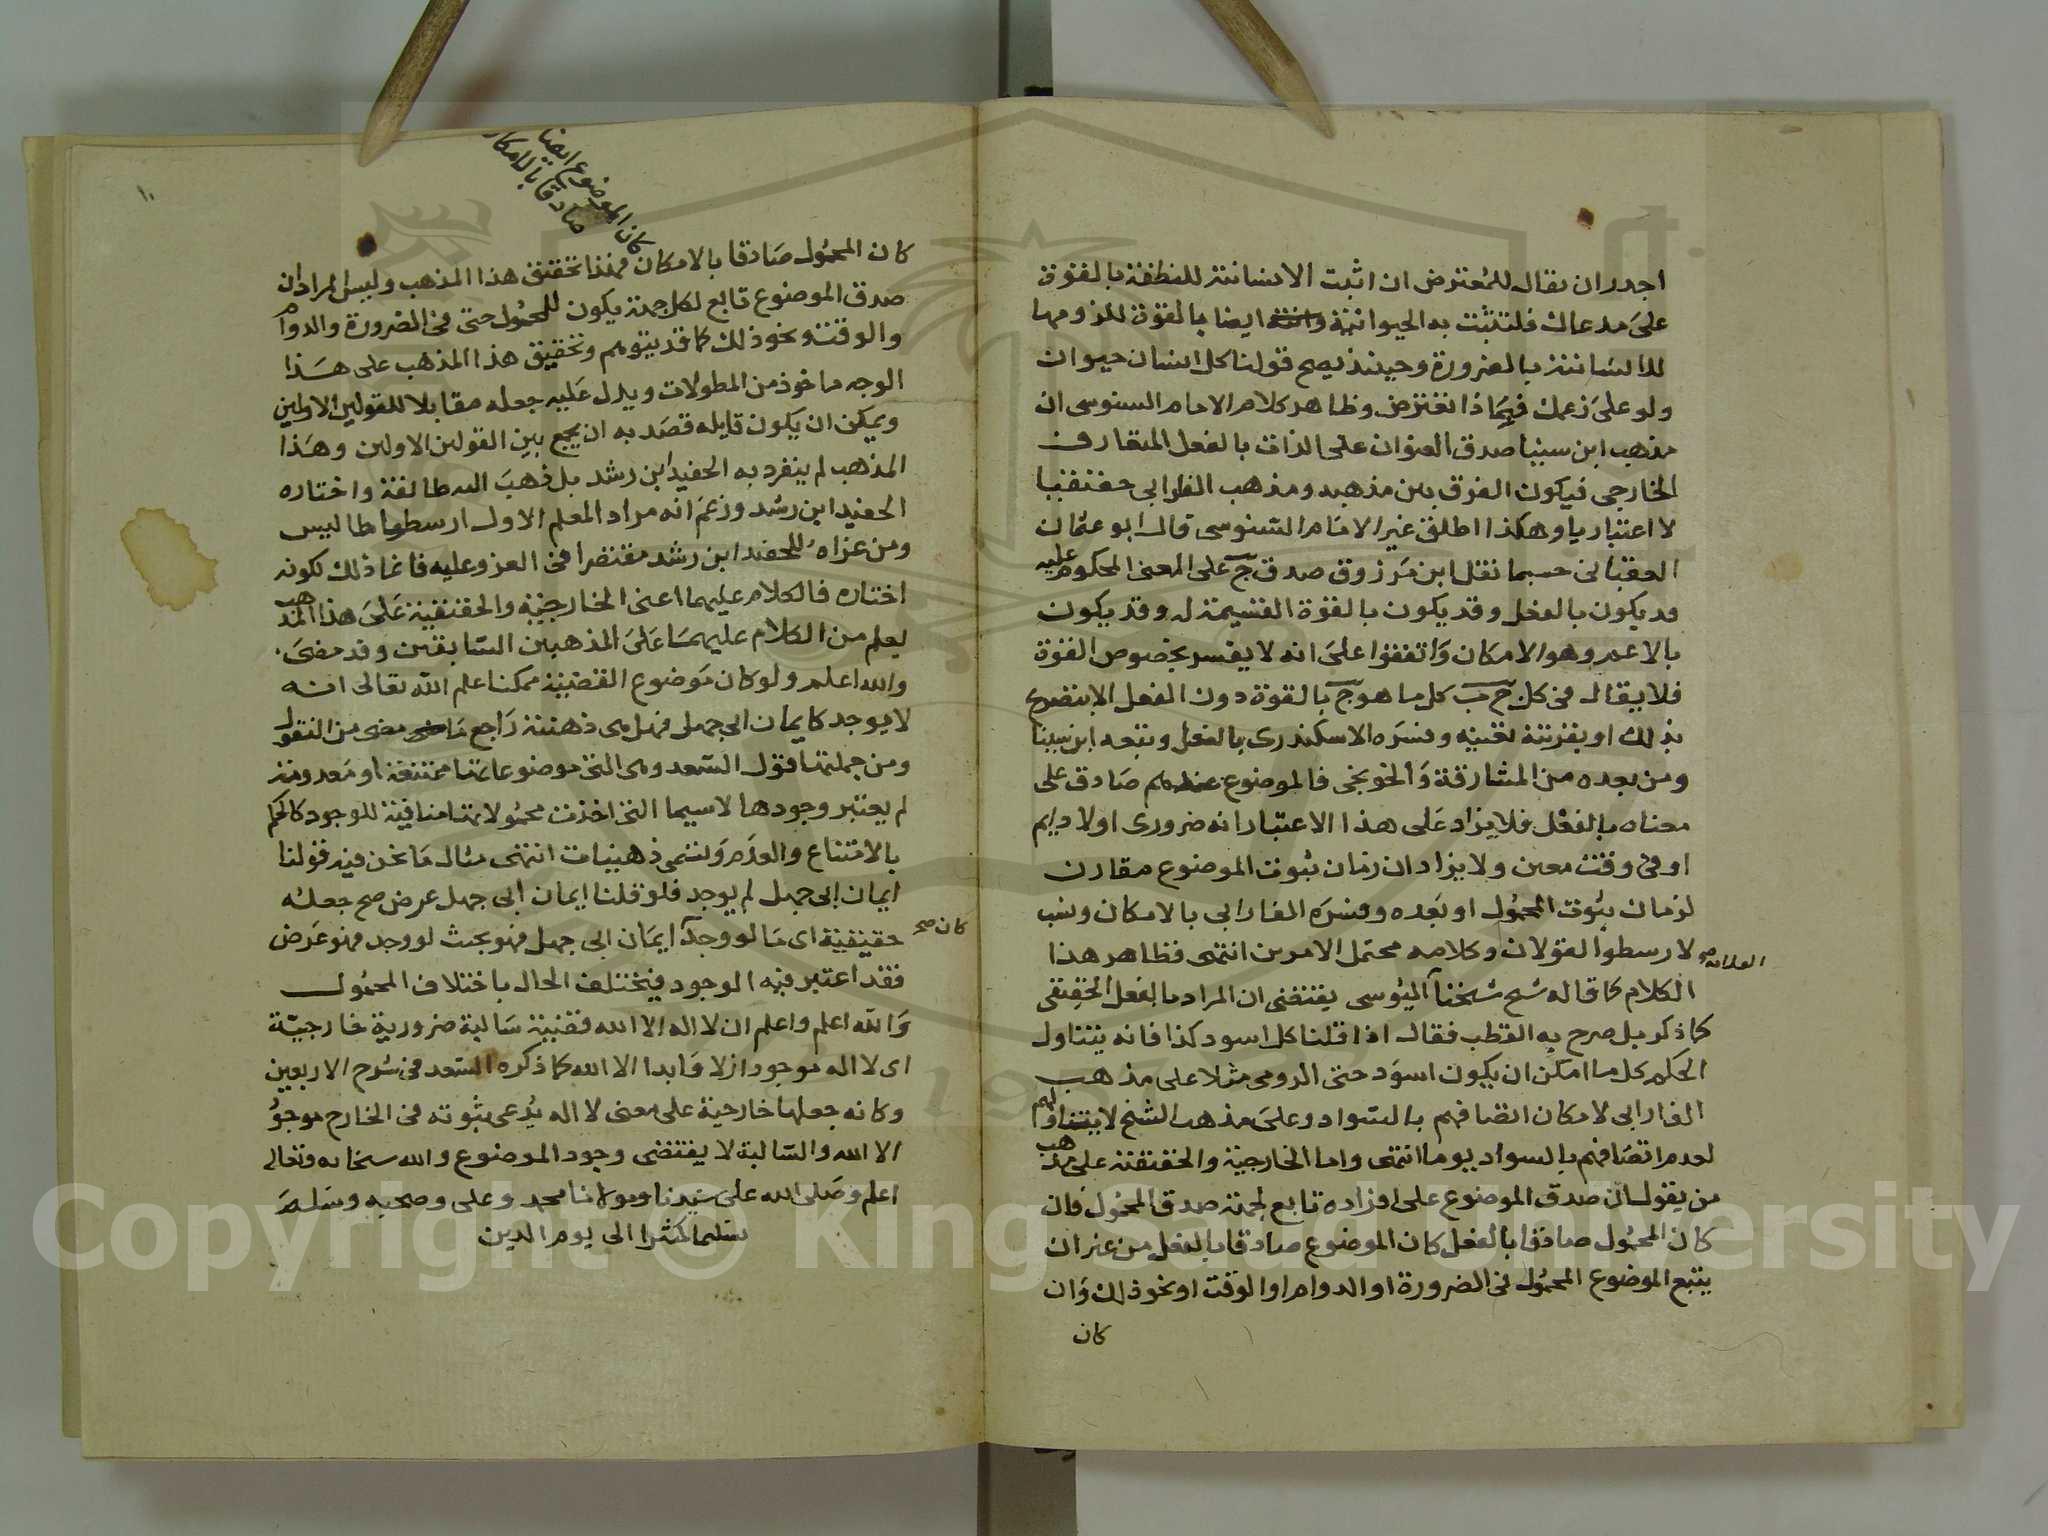 اجدر ان يقال للمعترض ان اثبت الانسانية للنطفة بالقوة
على مدعاك فلتثبت به الحيوانية ايضا بالقوة للزومها
للانسانية بالضرورة وحينئذ يصح قولنا كل انسان حيوان
ولو على زعمك فبماذا تعترض وظاهر كلام الامام السنوسي ان
مذهب ابن سينا صدق العنوان على الذات بالفعل المقارن
الخارجي فيكون الفرق بين مذهبه ومذهب الفارابي حقيقيا
لا اعتباريا وهكذا اطلق غير الامام السنوسي قال ابو عثمان
العقباني حسبما نقل ابن مرزوق صدق ج على المعنى المحكوم عليه
قد يكون بالفعل وقد يكون بالقوة القسيمة له وقد يكون
بالاعم وهو الامكان واتفقوا على انه لا يفسر بخصوص القوة
فلا يقال في كل ج ب كل ما هو ج بالقوة دون الفعل الا بتصريح
بذلك او بقرينة تعينه وفسره الاسكندري بالفعل وتبعه ابن سينا
ومن بعده من المشارقة والخونجي فالموضوع عندهم صادق على
معناه بالفعل فلا يزاد على هذا الاعتبار انه ضروري اولا دايم
او في وقت معين ولا يزاد ان زمان ثبوت الموضوع مقارن
لزمان ثبوت المحمول او بعده وفسره الفارابي بالامكان ونسب
لارسطوا القولان وكلامه محتمل الامرين انتهى فظاهر هذا
الكلام كما قاله شيخ شيخنا اليوسي يقتضي ان المراد بالفعل الحقيقي
كما ذكر بل صرح به القطب فقال اذا قلنا كل اسود كذا فانه يتناول
الحكم كل ما امكن ان يكون اسود حتى الرومي مثلا على مذهب
الفارابي لامكان اتصافهم بالسواد وعلى مذهب الشيخ لا يتناولهم
لعدم اتصافهم بالسواد يوما انتهى واما الخارجية والحقيقية على مذهب
من يقول ان صدق الموضوع على افراده تابع لجهة صدق المحمول فان
كان المحمول صادقا بالفعل كان الموضوع صادقا بالفعل من غير ان
يتبع الموضوع المحمول في الضرورة او الدوام او الوقت او نحو ذلك وان
كان
كان الموضوع ايضا
صادقا بالامكان
١٠
كان المحمول صادقا بالامكان فهذا تحقيق هذا المذهب وليس المراد ان
صدق الموضوع تابع لكل جهة يكون للمحمول حتى في الضرورة والدوام
والوقت ونحو ذلك كما قد يتوهم وتحقيق هذا المذهب على هذا
الوجه ماخوذ من المطولات ويدل عليه جعله مقابلا للقولين الاولين
ويمكن ان يكون قايله قصد به ان يجمع بين القولين الاولين وهذا
المذهب لم ينفرد به الحفيد ابن رشد بل ذهب اليه طائفة واختاره
الحفيد ابن رشد وزعم انه مراد المعلم الاول ارسطوا طاليس
ومن عزاه للحفيد ابن رشد مقتصرا في العزو عليه فانما ذلك لكونه
اختاره فالكلام عليهما اعني الخارجية والحقيقية على هذا المذهب
يعلم من الكلام عليهما على المذهبين السابقين وقد مضى
والله اعلم ولو كان موضوع القضية ممكنا علم الله تعالى انه
لا يوجد كايمان ابي جهل فهل هي ذهنية راجع مضى من النقول
ومن جملتها قول السعد وهي التي موضوعاتها ممتنعة او معدومة
لم يعتبر وجودها لاسيما التي اخذت محمولاتها منافية للوجود كالحكم
بالامتناع والعدم وتسمى ذهنيات انتهى مثال ما نحن فيه قولنا
ايمان ابي جهل لم يوجد فلو قلنا ايمان ابي جهل عرض صح جعله
حقيقية اي ما لو وجد كان صح ايمان ابي جهل فهو بحيث لو وجد فهو عرض
فقد اعتبر فيه الوجود فيختلف الحال باختلاف المحمول
والله اعلم واعلم ان لا اله الا الله قضية سالبة ضرورية خارجية
اي لا اله موجود ازلا وابدا الا الله كما ذكره السعد في شرح الاربعين
وكانه جعلها خارجية على معنى لا اله يدعى ثبوته في الخارج موجود
الا الله والسالبة لا يقتضي وجود الموضوع والله سبحانه وتعالى
اعلم وصلى الله على سيدنا ومولانا محمد وعلى وصحبه وسلم
تسليما كثيرا الى يوم الدين
Copyright © King Saud University